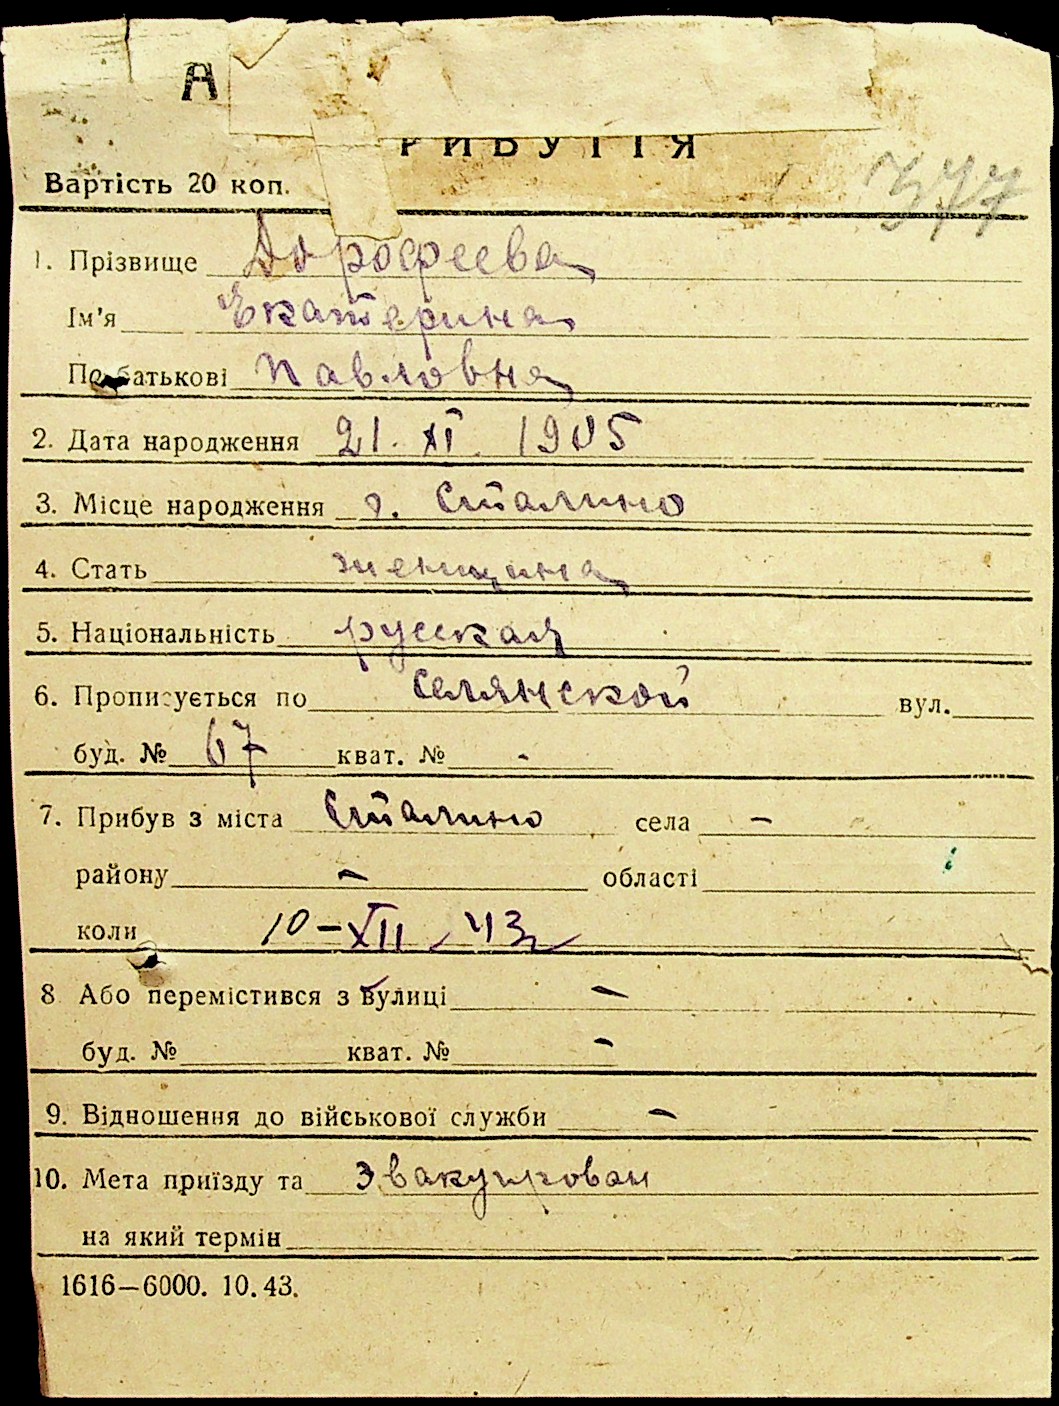 А
РИБУТТЯ
Вартість 20 коп.
377
1. Прізвище Дорофеева
Ім'я Екатерина
По батькові Павловна
2. Дата народження 21. XI. 1905
3. Місце народження г. Сталино
4. Стать женщина
5. Національність русская
6. Прописується по Селянской вул.
буд. № 67 кват. № -
7. Прибув з міста Сталино села -
району - області
коли 10-XII-43
8 Або перемістився з вулиці -
буд. № кват. № -
9. Відношення до військової служби -
10. Мета приїзду та Эвакуирован
на який термін
1616—6000. 10.43.